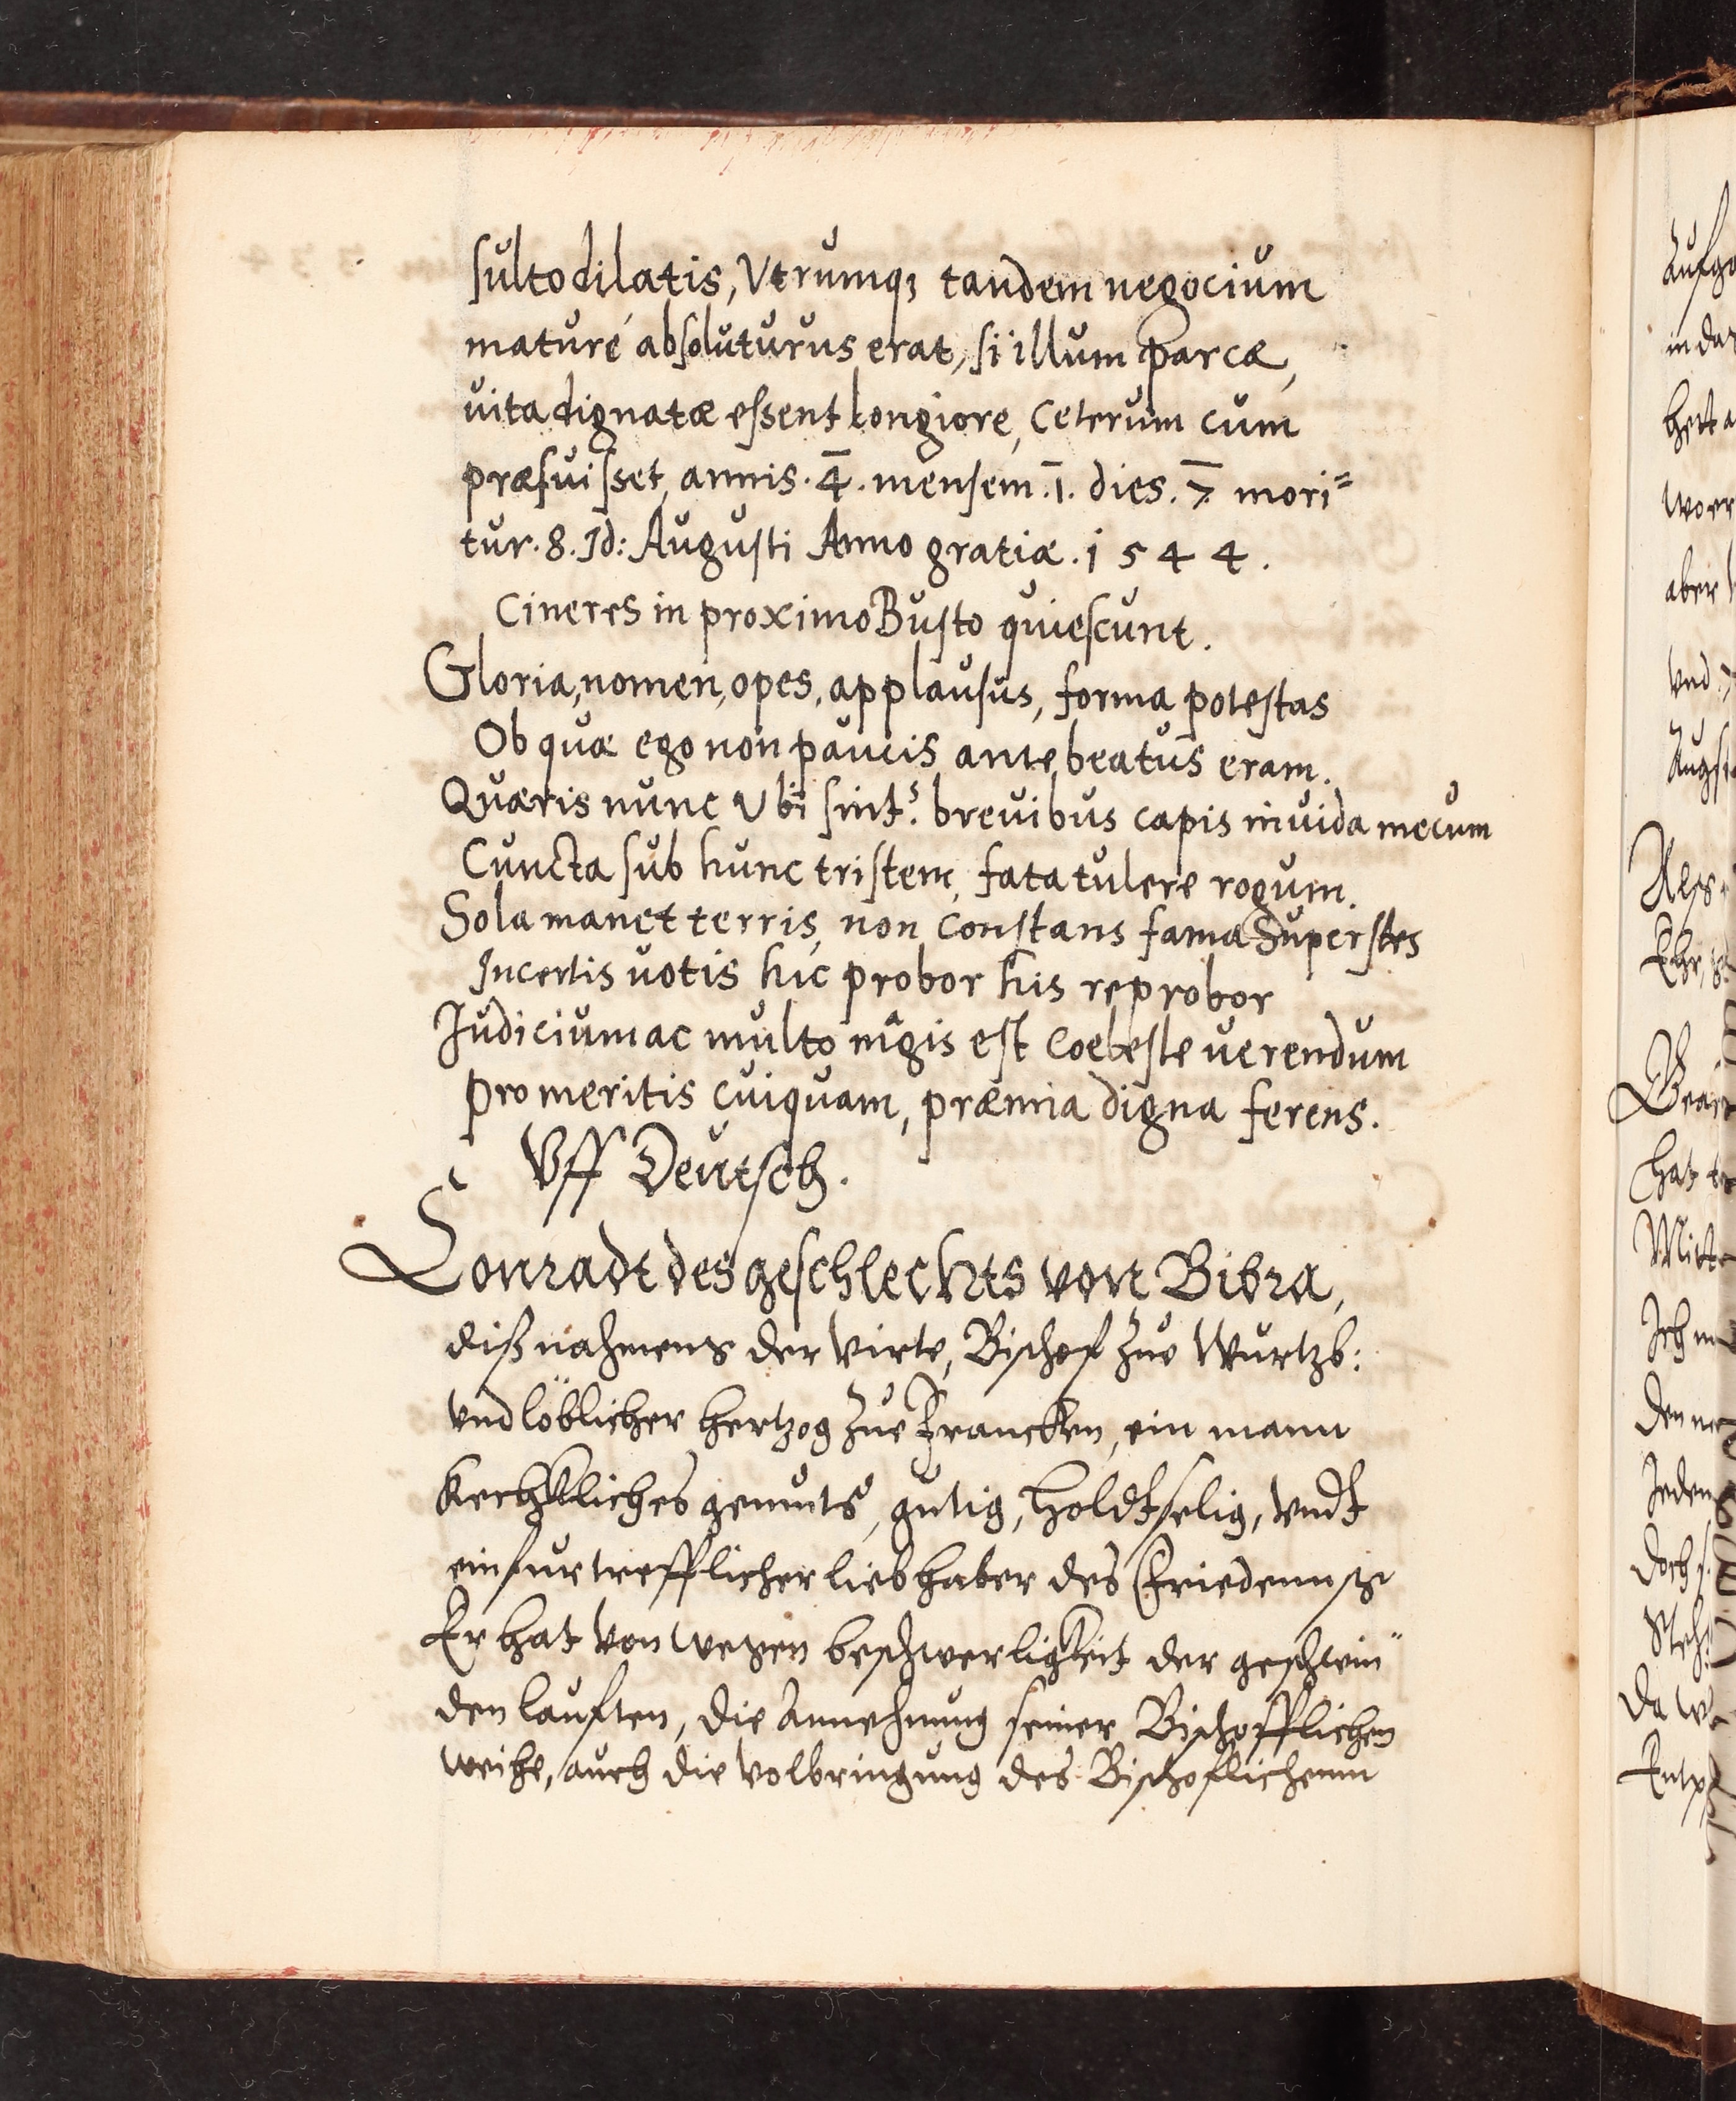 sultodilatis, Vtrumqꝫ tandem negocium
maturé absoluturus erat, si illum parcæ,
vita dignatæ essent longiore, Ceterum cum
præfuisset, annis. 4. mensem. 1. dies. 7. mori=
tur. 8. Id: Augusti Anno gratiæ. 1544.
Cineres in proximo Busto quiescunt.
Gloria, nomen, opes, applausus, forma potestas
Ob quæ ego non paucis ante beatus eram.
Quæris nunc Vbi sint? breuibus capis inuida mecum
Cuncta sub hunc tristem, fata tulere rogum.
Sola manet terris, non Constans fama Superstes
Incertis uotis hic probor his reprobor
Iudicium ac multo magis est Coeleste uerendum
pro meritis cuiquam, præmia digna ferens.
Vff Deutsch.
Conradt des geschlechts von Bibra,
diß nahmens der virte, Bischof zue Wurtzb:
vnd löblicher hertzog zue Francken, ein mann
gemuts, gutig, holdtselig, vndt
ein furtrefflicher liebhaber des Friedenns
Er hat von wegen beschwerligkeit der geschwin"
den lauften, die Annehmung seiner Bischofflichen
weihe, auch die volbringung des Bischoflichenn
Aufg
in da
hett a
wo er
aber
vnd
Augs
Ehr,
hat
Mitt
Ich m
den
Jeden
doch
Steh
da w
Ent